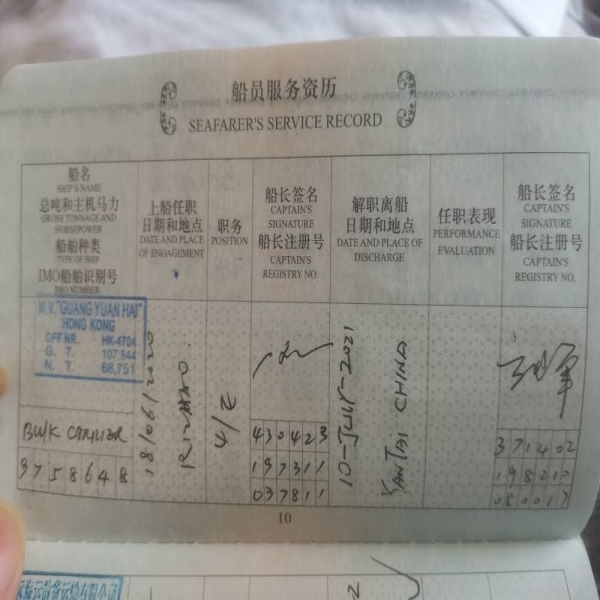 船员服务资历
SEAFARER'S SERVICE RECORD
船名
SHIP'S NAME
总吨和主机马力
GROSS TONNAGE AND
HORSEPOWER
船舶种类
TYPE OF SHIP
IMO船舶识别号
IMO NUMBER
上船任职
日期和地点
DATE AND PLACE
OF ENGAGEMENT
职务
POSITION
船长签名
CAPTAIN'S
SIGNATURE
船长注册号
CAPTAIN'S
REGISTRY NO.
解职离船
日期和地点
DATE AND PLACE OF
DISCHARGE
任职表现
PERFORMANCE
EVALUATION
船长签名
CAPTAIN'S
SIGNATURE
船长注册号
CAPTAIN'S
REGISTRY NO.
M.V."GUANG YUAN HAI"
HONG KONG
OFF NR. HK-4704
G. T. 107,844
N. T. 68,751
BULK CARRIER
9758648
18/06/2020
RIZHAO
4/E
430423
197311
037811
10-JULY-2021
YANTAI CHINA
371402
198217
080017
10